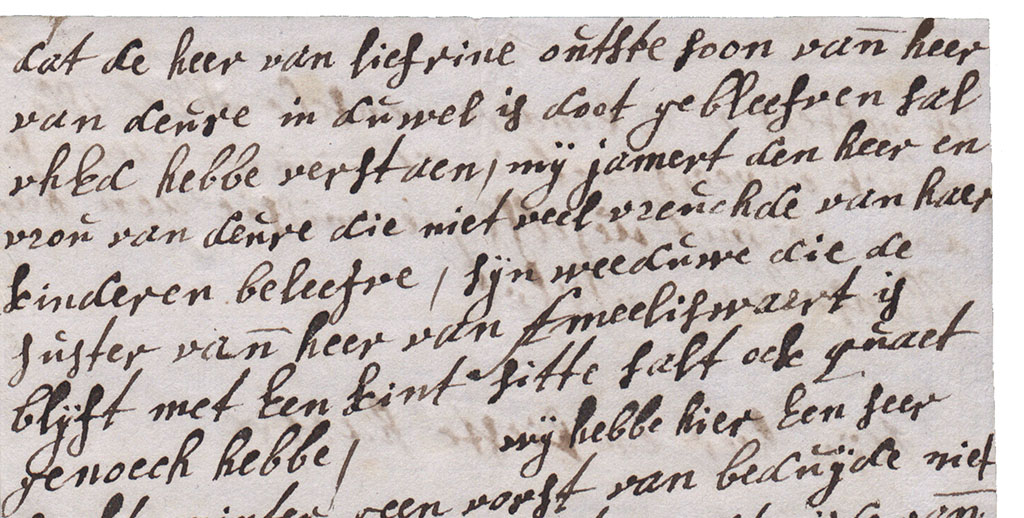 dat de heer van liefrine outste soon vañ heer
van deure in duwel is doot gebleefven sal
vhEd hebbe verstaen, mÿ jamert den heer en
vrou van deure die niet veel vreuchde van haer
kinderen beleefve, sÿn weeduwe die de
suster vañ heer van smeeliswaert is
blÿft met een kint sitte salt ock quaet
genoech hebbe, wÿ hebbe hier een seer
winter geen vorst van beduÿde niet